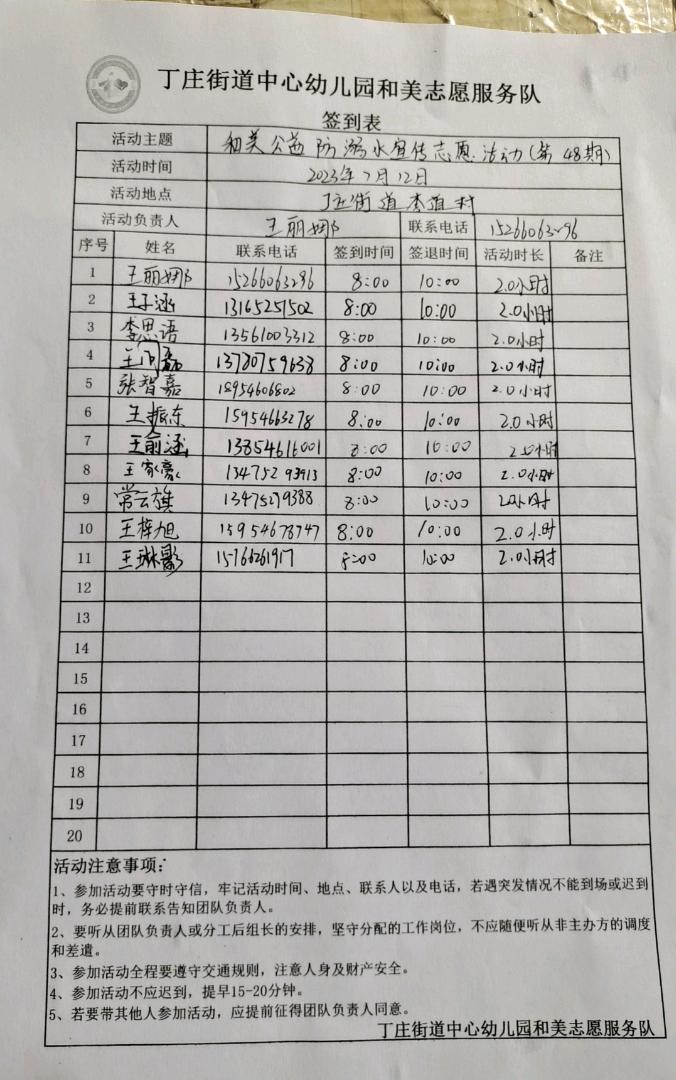 丁庄街道中心幼儿园和美志愿服务队
签到表
活动主题 和美公益 防溺水宣传志愿活动(第48期)
活动时间 2023年7月12日
活动地点 丁庄街道李道村
活动负责人 王丽娜 联系电话 15266063296
序号 姓名 联系电话 签到时间 签退时间 活动时长 备注
1 王丽娜 15266063296 8:00 10:00 2.0小时
2 王子涵 13165251502 8:00 10:00 2.0小时
3 李思语 13561003312 8:00 10:00 2.0小时
4 13780759638 8:00 10:00 2.0小时
5 张智嘉 18954606802 8:00 10:00 2.0小时
6 王振东 15954663278 8:00 10:00 2.0小时
7 王俞涵 13854616001 8:00 10:00 2.0小时
8 王家豪 13475293913 8:00 10:00 2.0小时
9 常云旗 13475279388 8:00 10:00 2.0小时
10 王梓旭 15954678747 8:00 10:00 2.0小时
11 王琳影 15766261917 8:00 10:00 2.0小时
12
13
14
15
16
17
18
19
20
活动注意事项:
1、参加活动要守时守信，牢记活动时间、地点、联系人以及电话，若遇突发情况不能到场或迟到
时，务必提前联系告知团队负责人。
2、要听从团队负责人或分工后组长的安排，坚守分配的工作岗位，不应随便听从非主办方的调度
和差遣。
3、参加活动全程要遵守交通规则，注意人身及财产安全。
4、参加活动不应迟到，提早15-20分钟。
5、若要带其他人参加活动，应提前征得团队负责人同意。
丁庄街道中心幼儿园和美志愿服务队